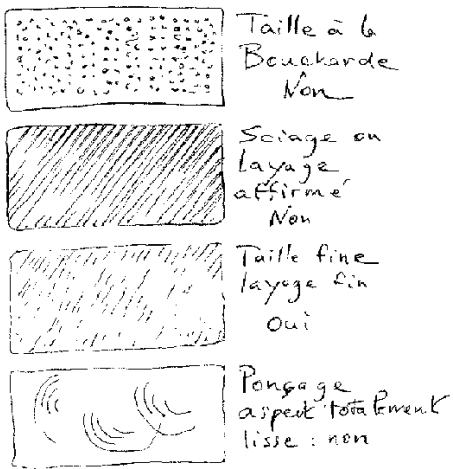 Taille à la
Boucharde
Non
Sciage ou
layage
affirmé
Non
Taille fine
layage fin
Oui
Ponçage
aspect totalement
lisse : non